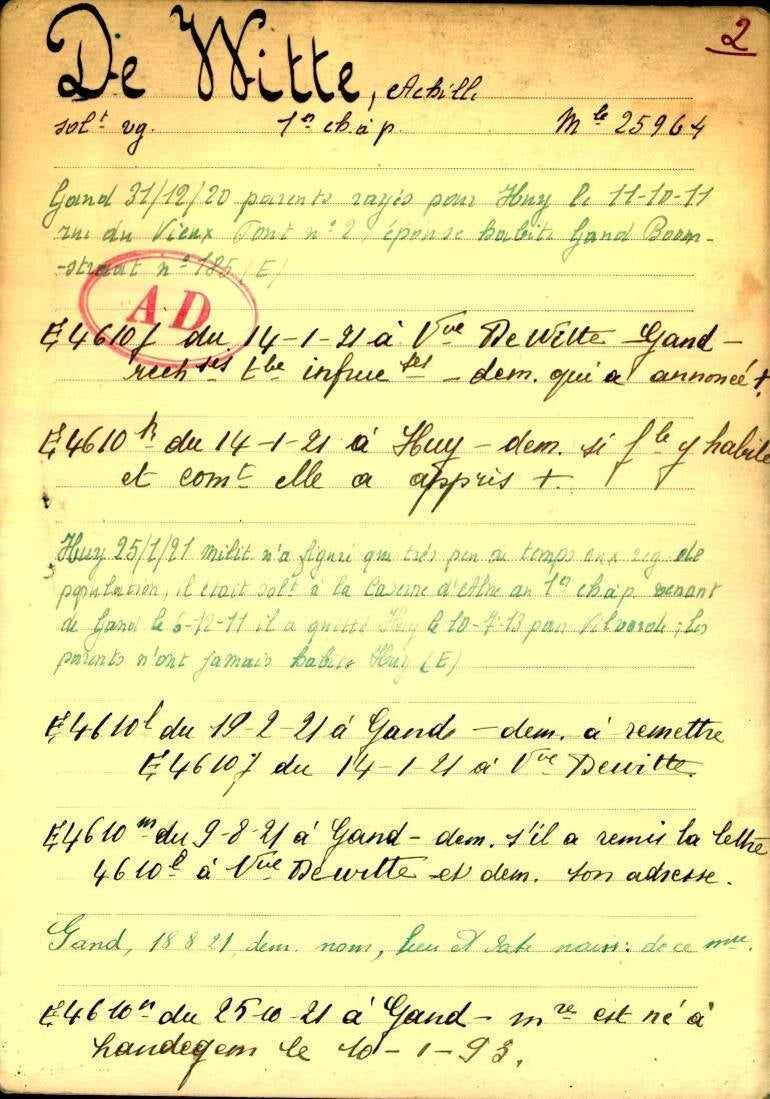 2
De Witte, Achille
solt vg. 1er ch à p. Mle 25964
Gand 31/12/20 parents rayés pour Huy le 11-10-11
rue du Vieux Pont n° 2, épouse habite Gand Boom-
-straat n° 185 (E)
AD
E4610j du 14-1-21 à Vve De Witte Gand -
rech ses tbe infrueses - dem. qui a annoncé +.
E4610k du 14-1-21 à Huy - dem. si fle y habite
et comt elle a appris +.
Huy 25/1/21 milit n'a figuré que très peu de temps aux reg. de
population, il était solt à la Caserne d'Ahn au 1er ch à p. venant
de Gand le 6-12-11 il a quitté Huy le 10-7-13 pour Vilvorde; les
parents n'ont jamais habité Huy (E)
E4610l du 19-2-21 à Gand - dem. à remettre
E4610j du 14-1-21 à Vve Dewitte
E4610m du 9-8-21 à Gand - dem. s'il a remis la lettre
4610l à Vve Dewitte et dem. son adresse.
Gand, 18 8 21, dem. nom, lieu et date naiss: de ce mre.
E4610n du 25-10-21 à Gand - mre est né à
Landegem le 10-1-93.